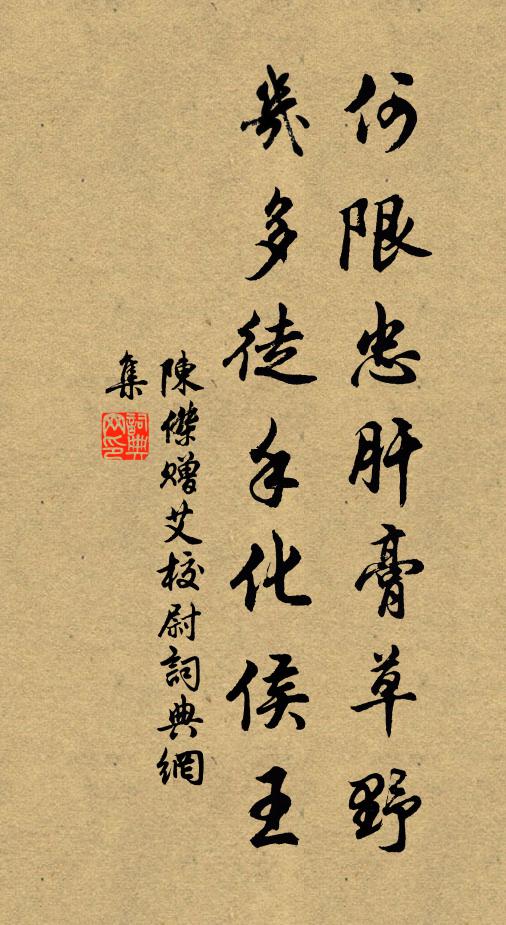 何限忠肝膏草野
幾多徒手化侯王
陳傑贈艾校尉詞典網
集
詞典
網印